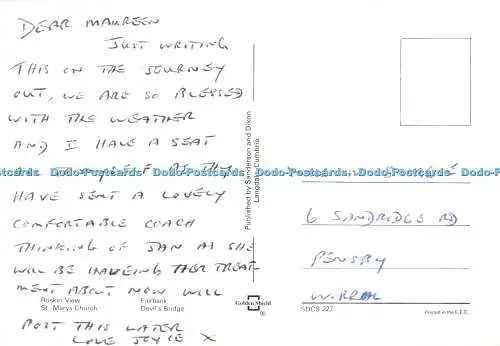 DEAR MAUREEN
JUST WRITING
THIS ON THE JOURNEY
OUT, WE ARE SO BLESSED
WITH THE WEATHER
AND I HAVE A SEAT
AS THEY
HAVE SENT A LOVELY
COMFORTABLE COACH
THINKING OF JAN AS SHE
WILL BE HAVEING THER TREAT-
MENT ABOUT NOW WILL
POST THIS LATER
LOVE JOYCE X
Ruskin View
St. Marys Church
Fairbank
Devil's Bridge
Published by Sanderson and Dixon
Langdale, Cumbria
Golden Shield
®
6 SANDRIDGE RD
PENSBY
WIRRAL
SDCS 227
Printed in the E.E.C.
Dodo-Postcards Dodo-Postcards Dodo-Postcards Dodo-Postcards